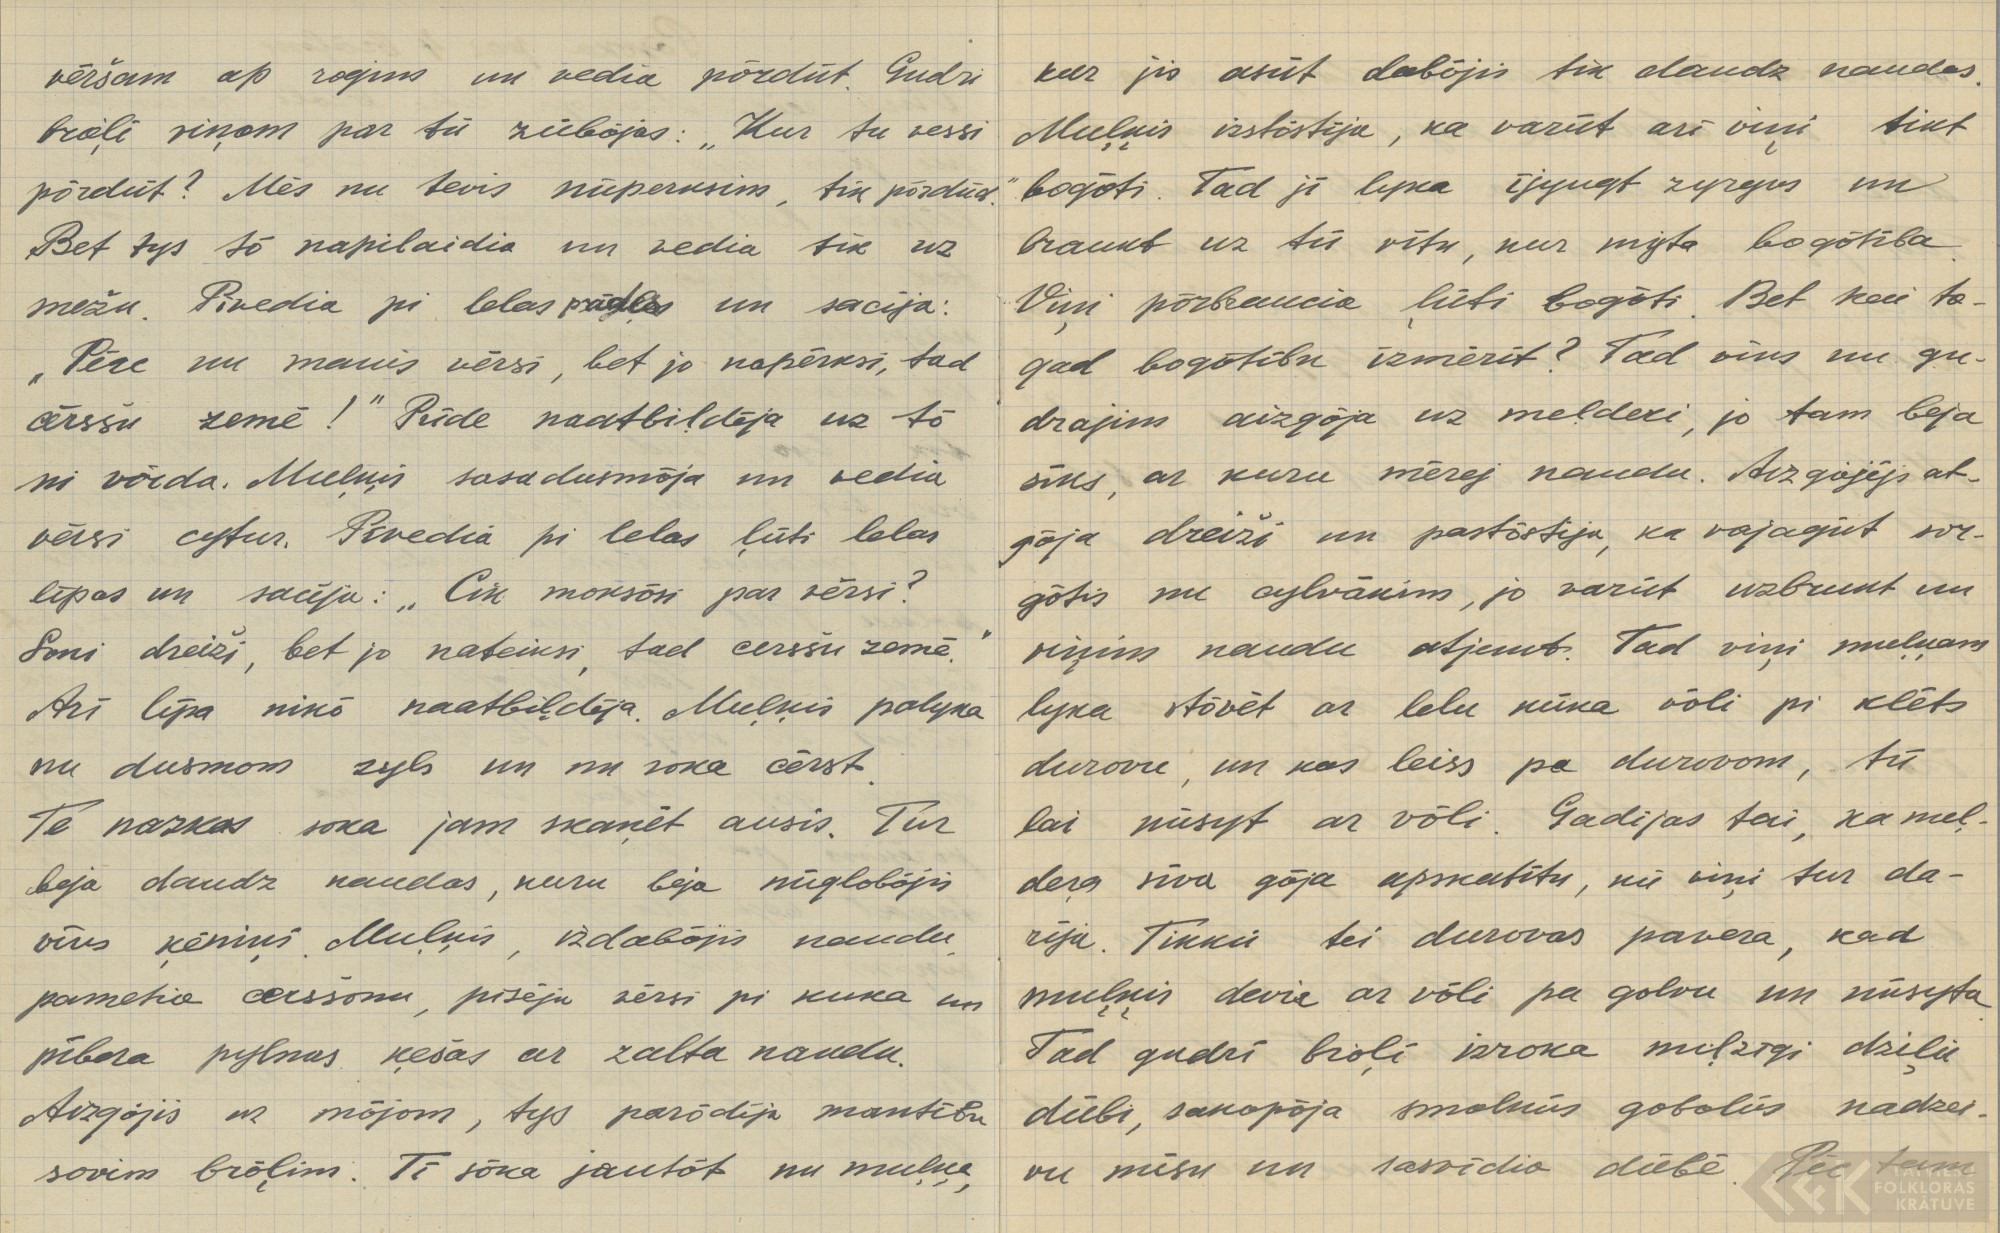 vēršam ap rogim un vedia pōrdūt. Gudri
brōļi viņam par tū zūbōjas: „Kur tu vessi
pōrdūt? Mēs nu tevis nūperksim, tik pōrdūd."
Bet tys tō napilaidia un vedia tik uz
mežu. Pīvedia pi lelas prīdes un sacīja:
„Pērc nu manis vērsi, bet jo napērksi, tad
cērsšu zemē!" Prīde naatbiļdēja uz tō
ni vōrda. Muļķis sasadusmōja un vedia
vērsi cytur. Pīvedia pi lelas ļūti lelas
līpas un sacīja: „Cik moksōsi par vērsi?
Soni dreiži, bet jo nateiksi, tad cersšu zemē."
Arī līpa nikō naatbiļdēja. Muļķis palyka
nu dusmom zyls un nu soka cērst.
Te nazkas soka jam skaņēt ausīs. Tur
beja daudz naudas, kuru beja nūglobōjis
vīns ķēniņš. Muļķis, izdabōjis naudu,
pametia cersšonu, pīsēju vērsi pi kuka un
pībera pylnas ķešas ar zalta naudu.
Aizgōjis uz mōjom, tys parōdīja mantību
sovim brōļim. Tī sōka jautōt nu muļķa,
kur jis asūt dabōjis tik daudz naudas.
Muļķis izstōstīja, ka varūt arī viņi tikt
bogōti. Tad jī lyka īyugt zyrgus un
braukt uz tū vītu, kur myta bogōtība.
Viņi pōrbraucia ļūti bogōti. Bet kai ta-
gad bogōtību izmērīt? Tad vīns nu gu-
drajim aizgōja uz meļderi, jo tam beja
sīks, ar kuru mērej naudu. Aizgōjējs at-
gōja dreiži un pastōstīja, ka vajagūt sor-
gōtis nu cylvākim, jo varūt uzbrukt un
viņim naudu atjemt. Tad viņi muļķam
lyka stōvēt ar lelu kūka vōli pi klēts
durovu, un kas leiss pa durovom, tū
lai nūsyt ar vōli. Gadījas tai, ka meļ-
dera sīva gōja apskatītu, kū viņi tur da-
rīja. Tikkū tei durovas pavera, kad
muļķis devia ar vōli pa golvu un nūsyta.
Tad gudrī broļi izroka miļzīgi dziļu
dūbi, sakapōja smolkūs gobolūs nadzei-
vu mīsu un sasvīdia dūbē. Pēc tam
LATVIEŠU
FOLKLORAS
KRĀTUVE